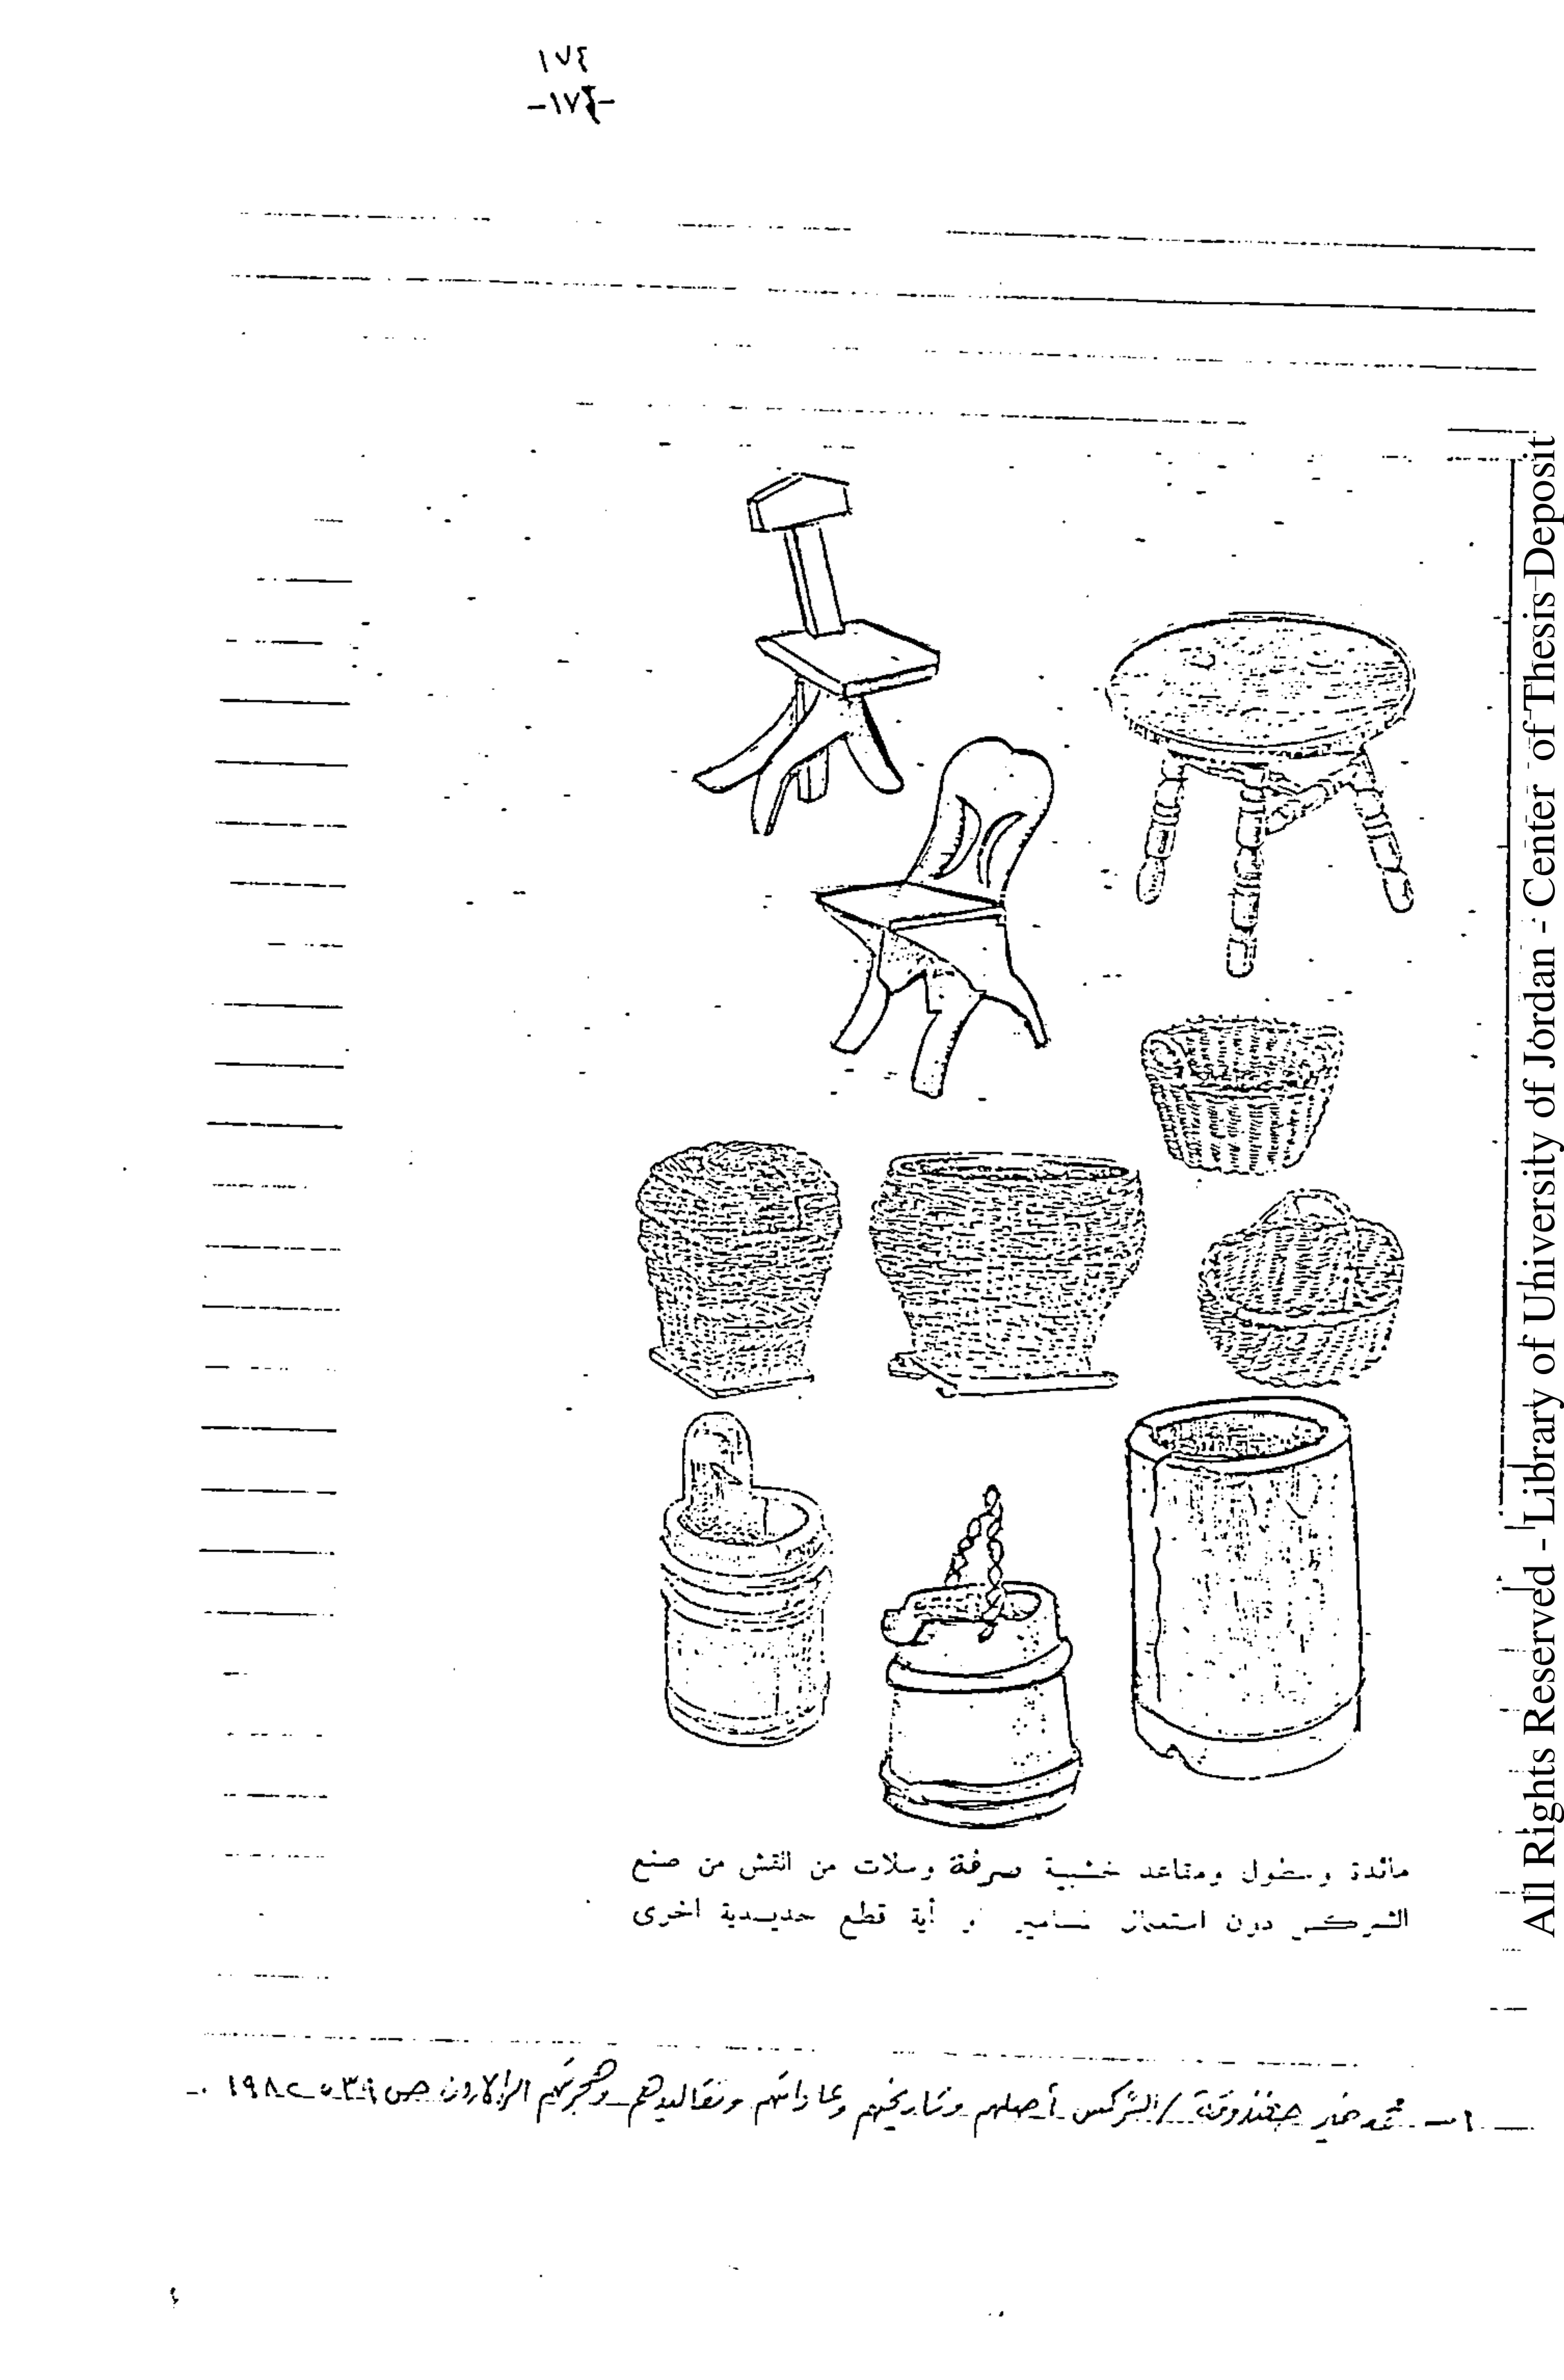 ١٧٤
-١٧٤-
مائدة وسطول ومقاعد خشبية صرفة وسلات من القش من صنع
الشركس دون استعمال مسامير أو أية قطع حديدية أخرى
١ـ محمد خير حغندوقة / الشركس أصلهم وتاريخهم وعاداتهم وتقاليدهم وهجرتهم الى الاردن ص ١٩٨٢
All Rights Reserved - Library of University of Jordan - Center of Thesis Deposit